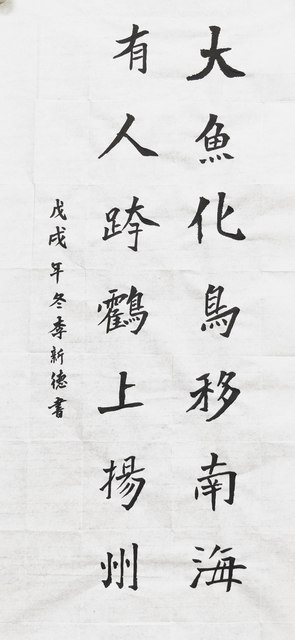 大魚化鳥移南海
有人跨鶴上揚州
戊戌年冬李新德書